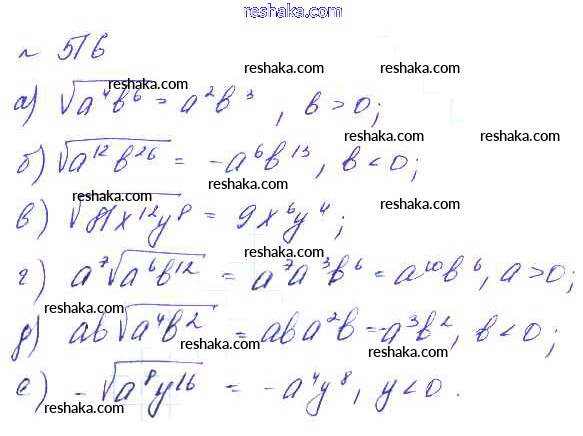 reshaka.com
№ 516
reshaka.com
а) √a⁴b⁶ = a²b³ , b > 0;
reshaka.com reshaka.com
reshaka.com reshaka.com
б) √a¹²b²⁶ = -a⁶b¹³, b < 0;
reshaka.com
reshaka.com reshaka.com
в) √81x¹²y⁸ = 9x⁶y⁴;
reshaka.com
г) a⁷√a⁶b¹² = a⁷a³b⁶ = a¹⁰b⁶, a > 0;
reshaka.com reshaka.com
д) ab√a⁴b² = aba²b = -a³b², b < 0;
reshaka.com reshaka.com
е) -√a⁸y¹⁶ = -a⁴y⁸, y < 0.
reshaka.com reshaka.com